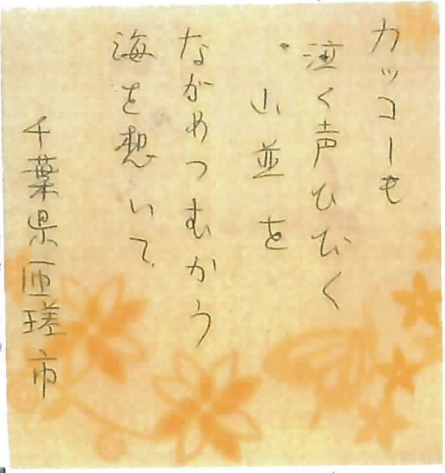 カッコーも
泣く声ひびく
山並を
ながめつむかう
海を想いて
千葉県匝瑳市